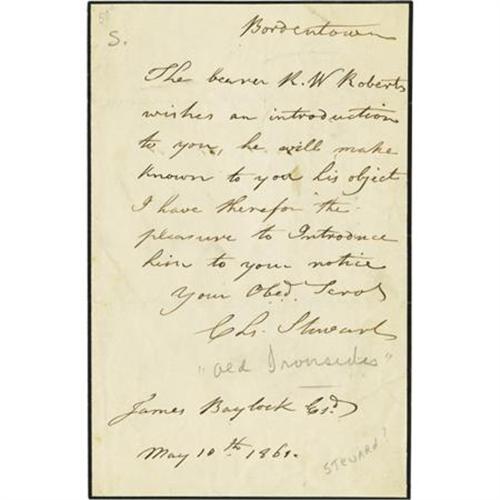 S.
Bordentown
The bearer R. W Roberts
wishes an introduction
to you, he will make
known to you his object
I have therefor the
pleasure to Introduce
him to your notice
Your Obed. Servt
Chs. Stewart
"Old Ironsides"
James Baylock Esq.
May 10th 1861.
STEWARD?